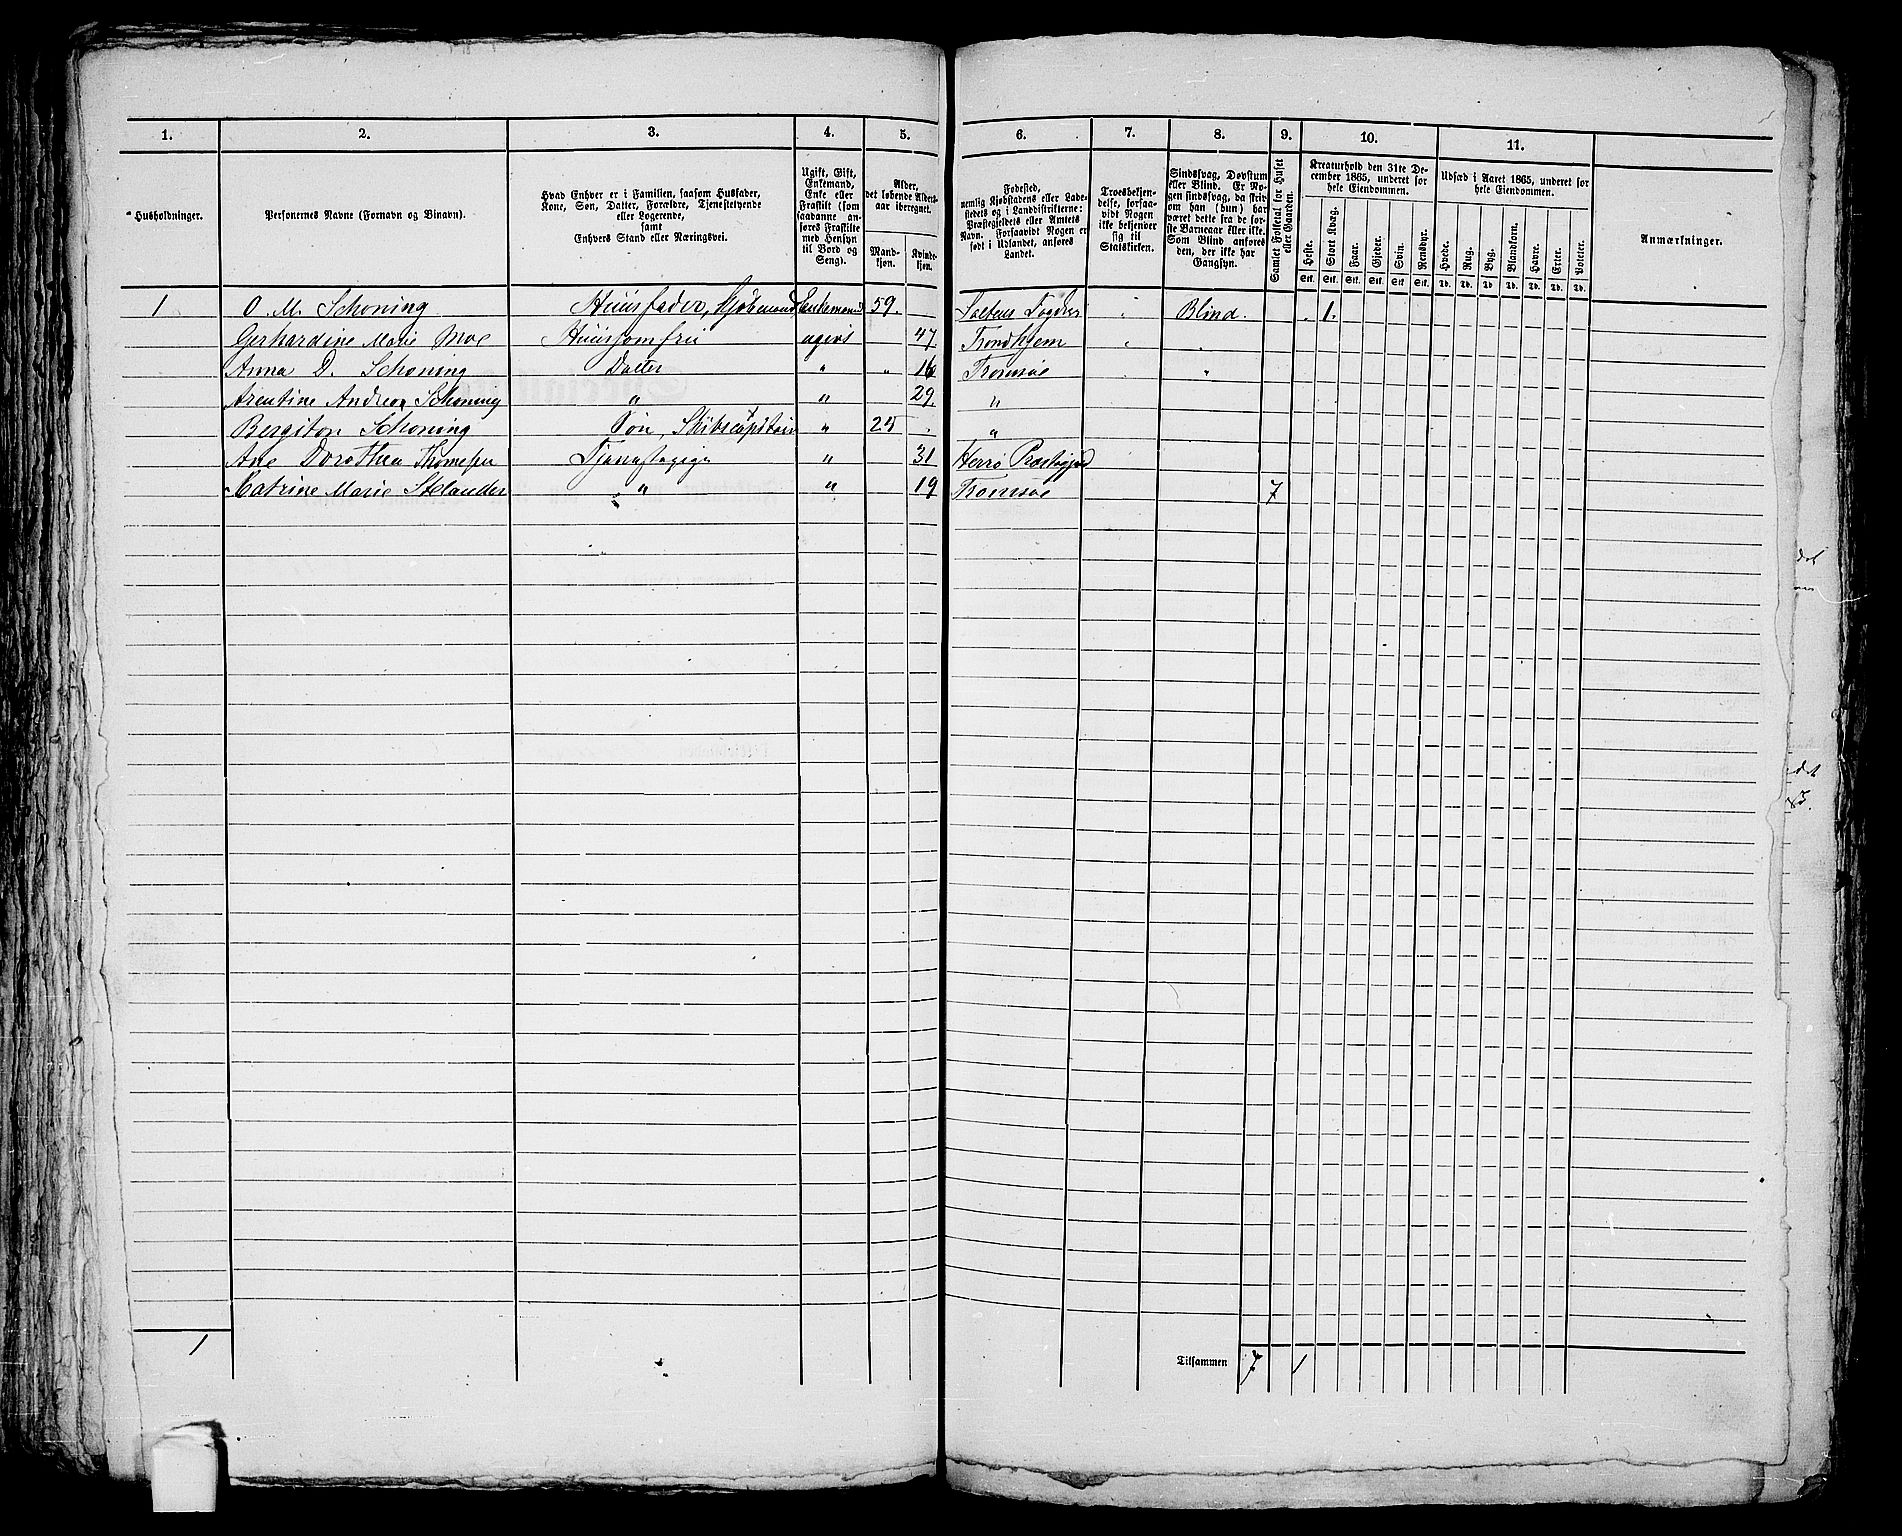 1. 2. 3. 4. 5. 6. 7. 8. 9. 10. 11.
Husholdninger.
Personernes Navne (Fornavn og Binavn).
Hvad Enhver er i Familien, saasom Husfader,
Kone, Søn, Datter, Forældre, Tjenestetyende
eller Logerende,
samt
Enhvers Stand eller Næringsvei.
Ugift, Gift,
Enkemand,
Enke eller
Fraskilt (som
saadanne an-
føres Fraskilte
med Hensyn
til Bord og
Seng).
Alder,
det løbende Alders-
aar iberegnet.
Mand-
kjøn.
Kvinde-
kjøn.
Fødested,
nemlig Kjøbstadens eller Lade-
stedets og i Landdistrikterne:
Præstegjeldets eller Amtets
Navn. Forsaavidt Nogen er
født i Udlandet, anføres
Landet.
Troesbekjen-
delse, forsaa-
vidt Nogen
ikke bekjender
sig til
Statskirken.
Sindssvag, Døvstum
eller Blind. Er No-
gen sindssvag, da skriv
om han (hun) har
været dette fra de før-
ste Barneaar eller ikke.
Som Blind anføres
den, der ikke har
Gangsyn.
Samlet Folketal for Huset
eller Gaarden.
Kreaturhold den 31te De-
cember 1865, underet for
hele Eiendommen.
Heste. Stort Kvæg. Faar. Gjeder. Svin. Rensdyr.
Stk. Stk. Stk. Stk. Stk. Stk.
Udsæd i Aaret 1865, underet for
hele Eiendommen.
Hvede. Rug. Byg. Blandkorn. Havre. Erter. Poteter.
Td. Td. Td. Td. Td. Td. Td.
Anmærkninger.
1 O. M. Schøning Huusfader, Kjøbmand Enkemand 59. Saltens Fogderi Blind. 1.
Gerhardine Marie Moe Huusjomfru ugivt 47 Trondhjem
Anna D. Schøning Datter " 16 Tromsøe "
Arentine Andrea Schøning " " 29. "
Bergiton Schøning Søn, Skibscapitain " 25 "
Ane Dorothea Thomesen Tjenestepige " 31 Herrø Præstegjeld
Katrine Marie Stelander " " 19 Tromsøe 7
1 Tilsammen 7 1